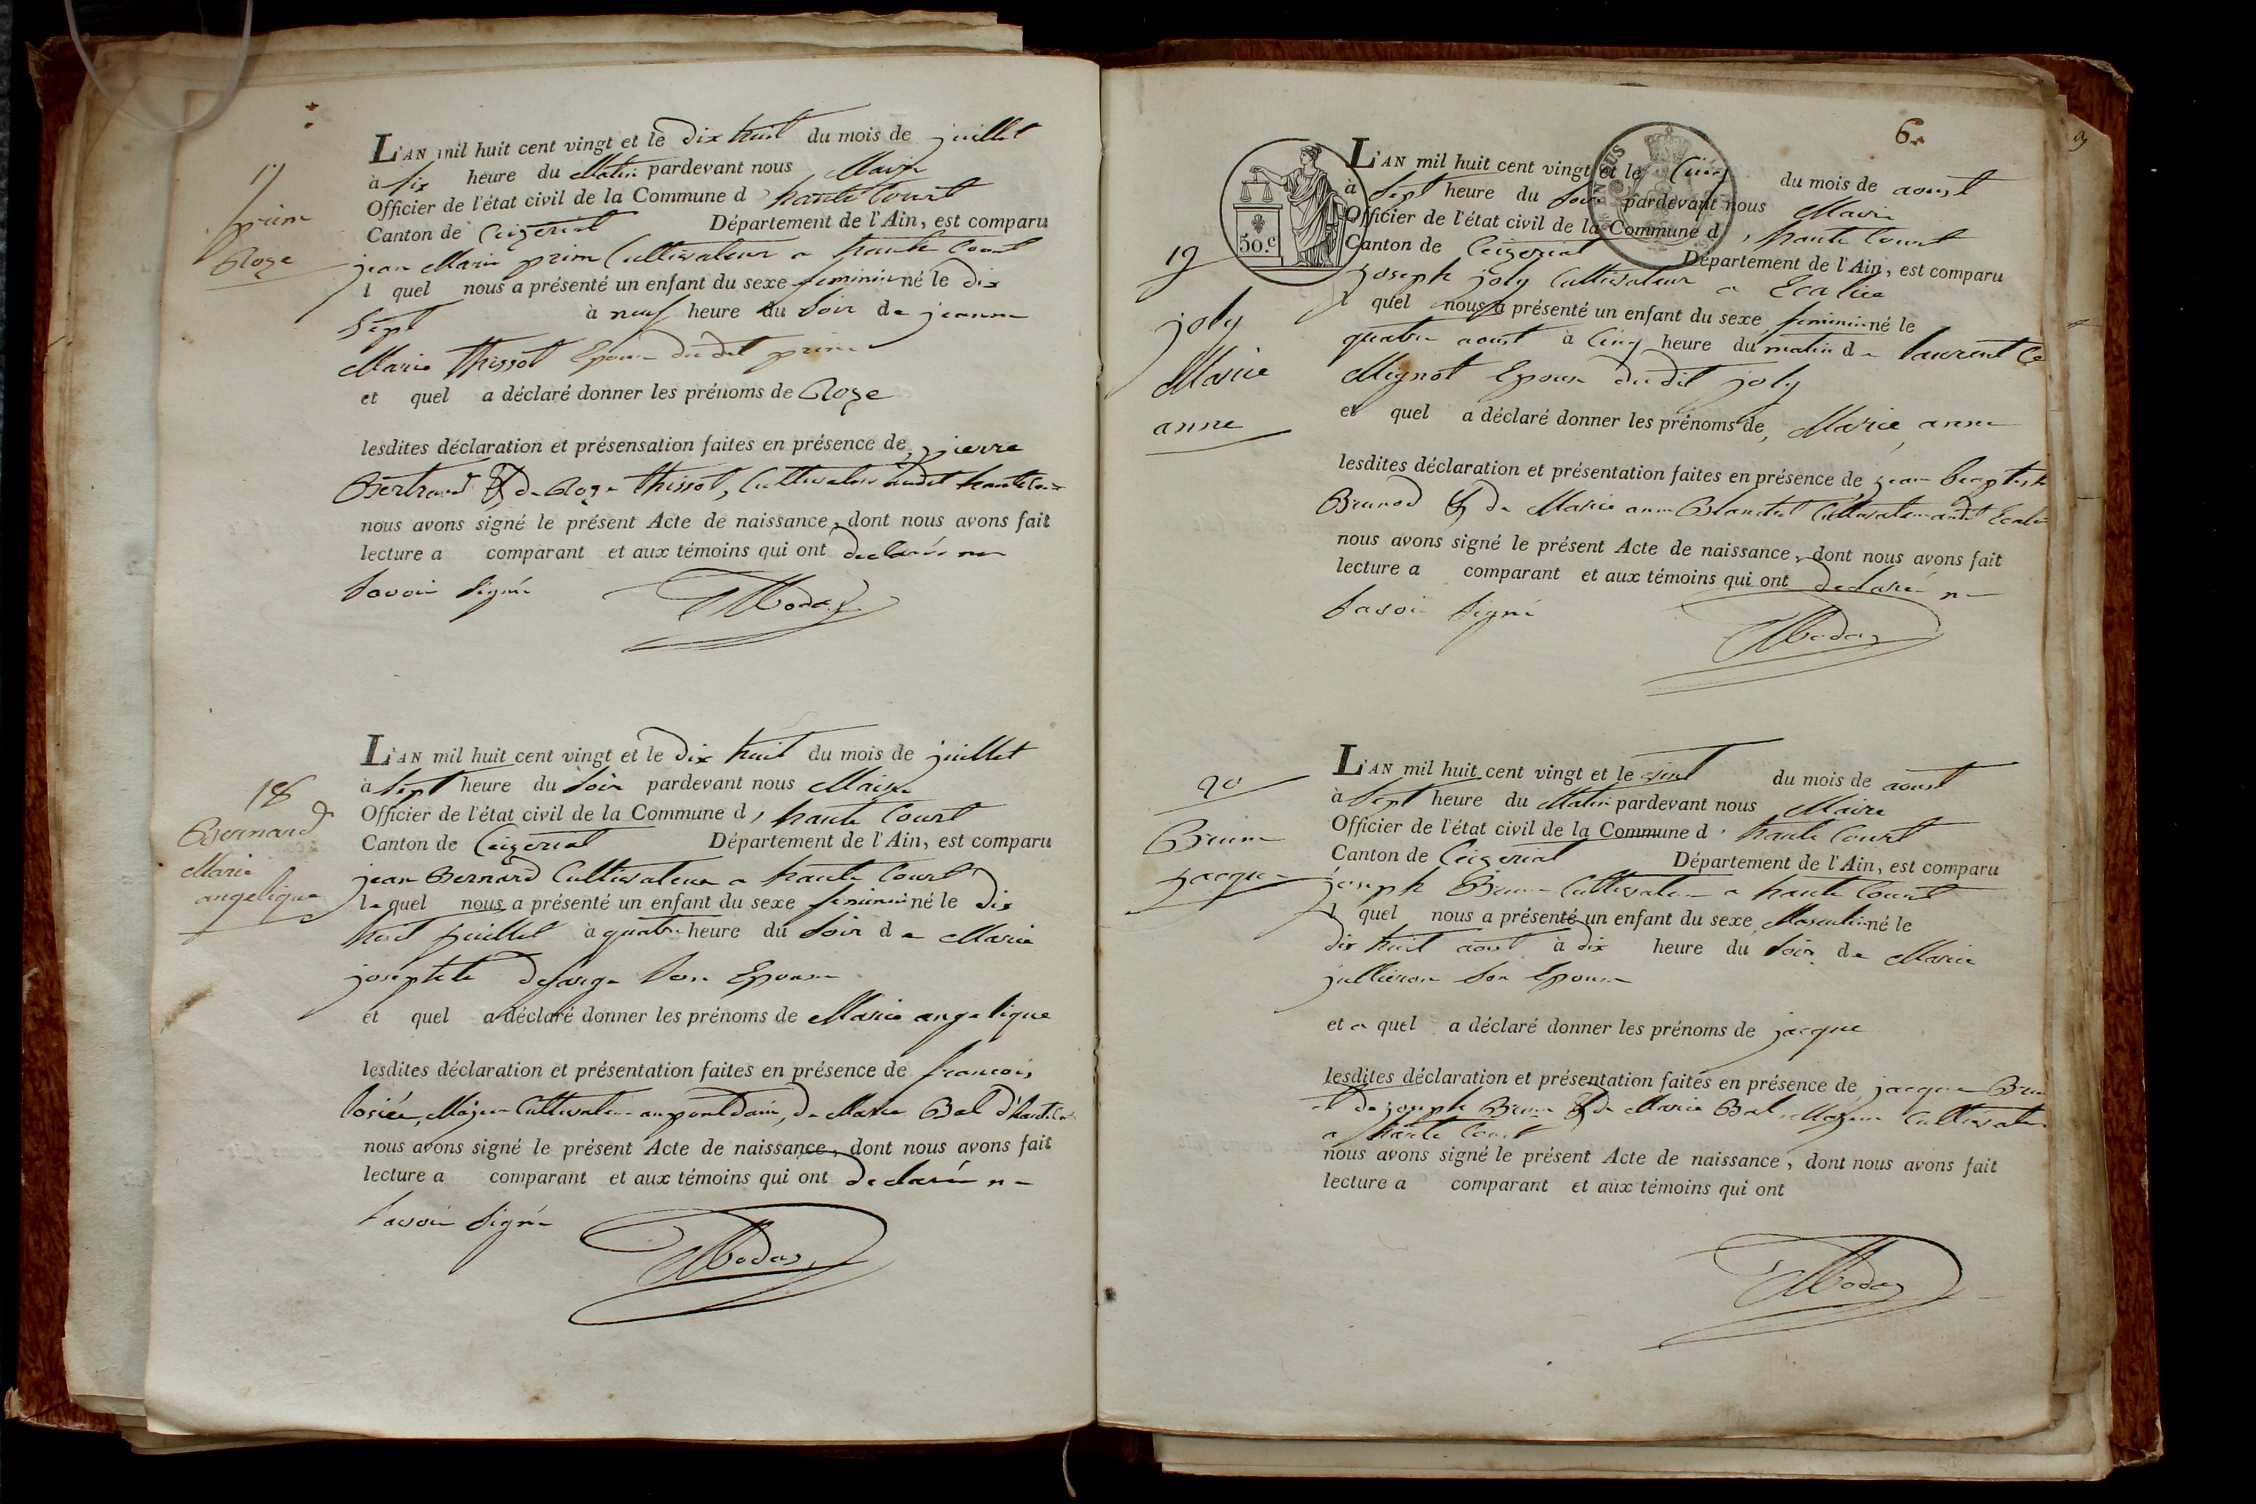 17
prim
Roze
L'AN mil huit cent vingt et le dix huit du mois de juillet
à six heure du Matin pardevant nous Maire
Officier de l'état civil de la Commune d'haute Court
Canton de Ceizeriat Département de l'Ain, est comparu
jean Marie prim Cultivateur a haute Court
l quel nous a présenté un enfant du sexe feminin né le dix
Sept à neuf heure du Soir de jeanne
Marie thissot Epouse dudit prim
et quel a déclaré donner les prénoms de Roze
lesdites déclaration et présensation faites en présence de pierre
Bertrand & de Roze thissot, Cultivateur audit haute Court
nous avons signé le présent Acte de naissance, dont nous avons fait
lecture a comparant et aux témoins qui ont declarée ne
Savoir Signé
18
Bernard
Marie
angelique
L'AN mil huit cent vingt et le dix huit du mois de juillet
à Sept heure du Soir pardevant nous Maire
Officier de l'état civil de la Commune d'haute Court
Canton de Ceizeriat Département de l'Ain, est comparu
jean Bernard Cultivateur a haute Court
le quel nous a présenté un enfant du sexe feminin né le dix
huit juillet à quatre heure du Soir de Marie
josephte Son Epouse
et quel a déclaré donner les prénoms de Marie angelique
lesdites déclaration et présentation faites en présence de francois
Majeur Cultivateur au pont dain, de Marie Bal d'haute
nous avons signé le présent Acte de naissance, dont nous avons fait
lecture a comparant et aux témoins qui ont declarée ne
Savoir Signé
6
30.c
19
joly
Marie
anne
L'AN mil huit cent vingt et le Cinq du mois de aoust
à Sept heure du Soir pardevant nous Maire
Officier de l'état civil de la Commune d'haute Court
Canton de Ceizeriat Département de l'Ain, est comparu
joseph joly Cultivateur a
l quel nous a présenté un enfant du sexe feminin né le
quatre aoust à Cinq heure du matin de
Mignot Epouse dudit joly
et quel a déclaré donner les prénoms de Marie anne
lesdites déclaration et présentation faites en présence de jean baptiste
Brunod & de Marie anne Blanchet Cultivateur audit
nous avons signé le présent Acte de naissance, dont nous avons fait
lecture a comparant et aux témoins qui ont declarée ne
Savoir Signé
20
jacque
L'AN mil huit cent vingt et le vint du mois de aoust
à Sept heure du Matin pardevant nous Maire
Officier de l'état civil de la Commune d'haute Court
Canton de Ceizeriat Département de l'Ain, est comparu
joseph Cultivateur a haute Court
l quel nous a présenté un enfant du sexe Masculin né le
dix huit aout à dix heure du Soir de Marie
jullieron Son Epouse
et a quel a déclaré donner les prénoms de jacque
lesdites déclaration et présentation faites en présence de jacque
et de joseph & de Marie Bal, Majeur Cultivateur
a haute Court
nous avons signé le présent Acte de naissance, dont nous avons fait
lecture a comparant et aux témoins qui ont